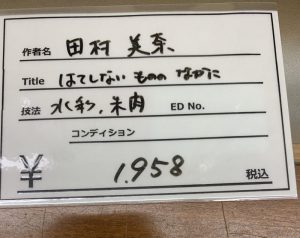 作者名 田村 美奈
Title はてしない もののなかに
技法 水彩, 朱肉 ED No.
コンディション
¥ 1.958 税込